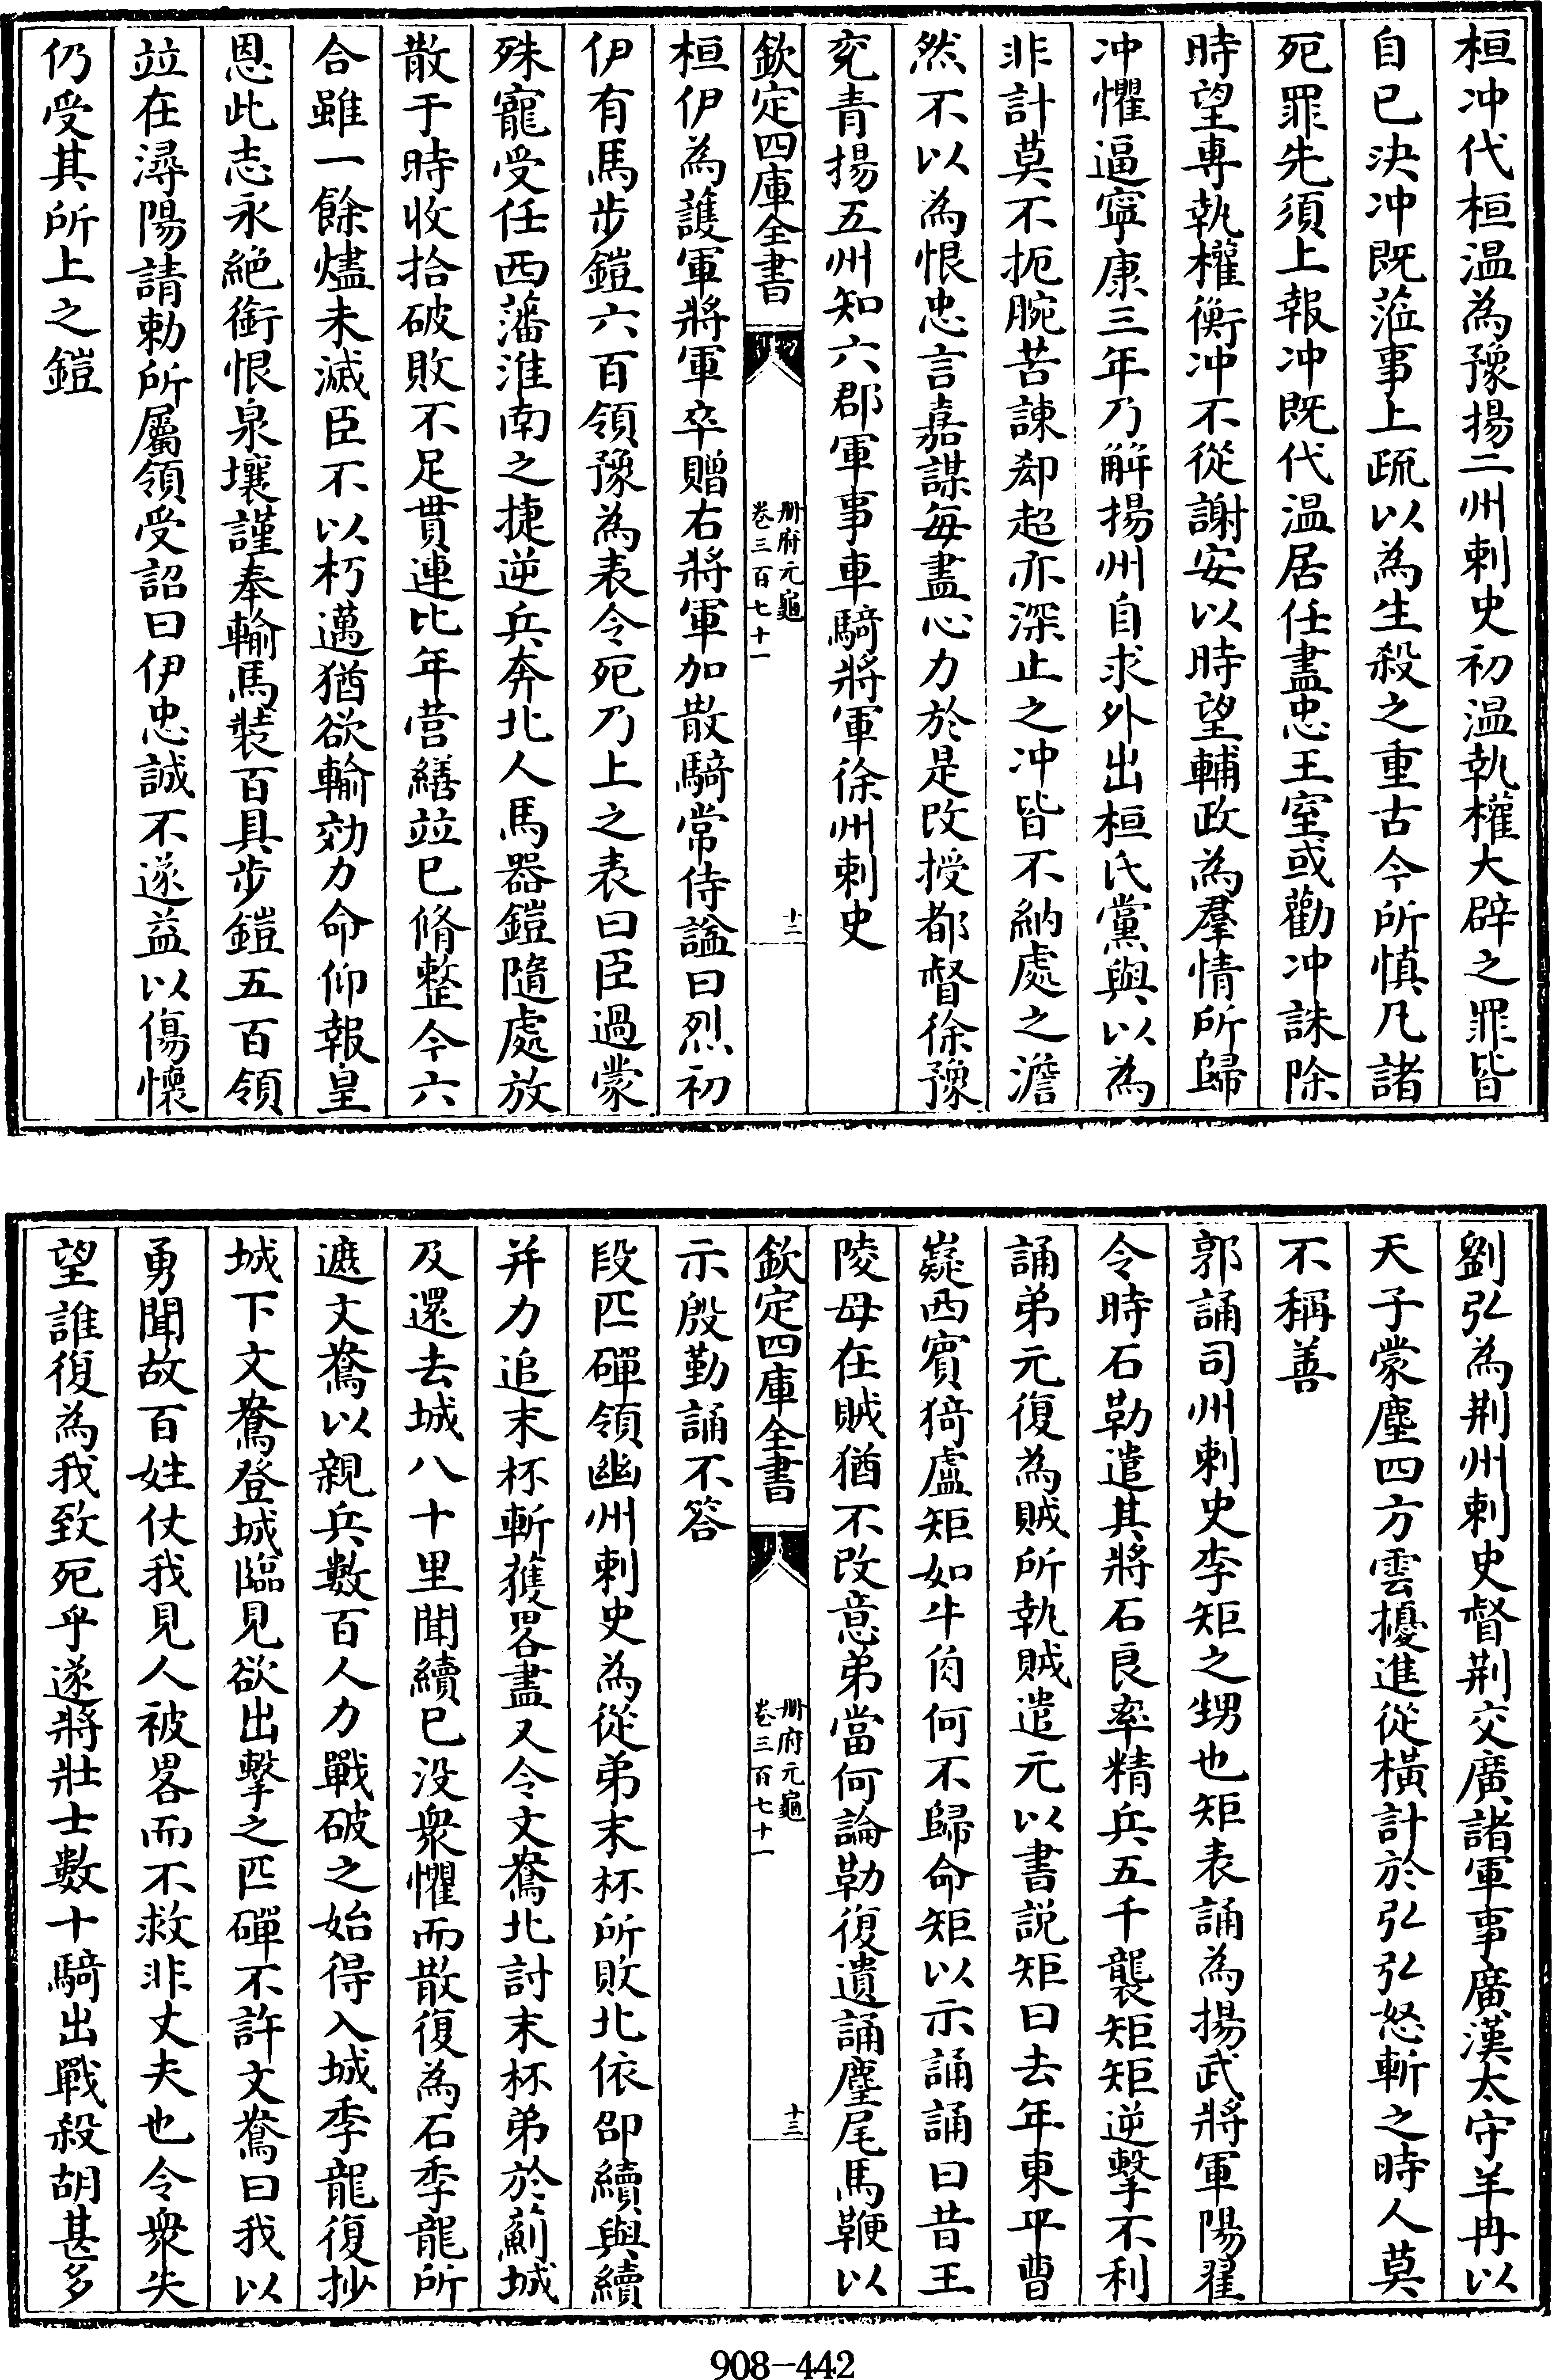 桓冲代桓温為豫揚二州刺史初温執權大辟之罪皆
自已決冲既蒞事上疏以為生殺之重古今所慎凡諸
死罪先須上報冲既代温居任盡忠王室或勸冲誅除
時望專執權衡冲不從謝安以時望輔政為羣情所歸
冲懼逼寧康三年乃解揚州自求外出桓氏黨與以為
非計莫不扼腕苦諫郄超亦深止之冲皆不納處之澹
然不以為恨忠言嘉謀每盡心力於是改授都督徐豫
兖青揚五州知六郡軍事車騎將軍徐州刺史
欽定四庫全書
册府元龜
卷三百七十一
十二
桓伊為護軍將軍卒贈右將軍加散騎常侍諡曰烈初
伊有馬步鎧六百領豫為表令死乃上之表曰臣過蒙
殊寵受任西藩淮南之捷逆兵奔北人馬器鎧隨處放
散于時收拾破敗不足貫連比年营繕竝已脩整今六
合雖一餘燼未滅臣不以朽邁猶欲輸効力命仰報皇
恩此志永絶銜恨泉壤謹奉輸馬裝百具步鎧五百領
竝在潯陽請勅所屬領受詔曰伊忠誠不遂益以傷懷
仍受其所上之鎧
劉弘為荆州刺史督荆交廣諸軍事廣漢太守羊冉以
天子蒙塵四方雲擾進從橫計於弘弘怒斬之時人莫
不稱善
郭誦司州刺史李矩之甥也矩表誦為揚武將軍陽翟
令時石勒遣其將石良率精兵五千襲矩矩逆擊不利
誦弟元復為賊所執賊遣元以書説矩曰去年東平曹
嶷西賓猗盧矩如牛角何不歸命矩以示誦誦曰昔王
陵母在賊猶不改意弟當何論勒復遺誦麈尾馬鞭以
欽定四庫全書
册府元龜
卷三百七十一
十三
示殷勤誦不答
段匹磾領幽州刺史為從弟末杯所敗北依邵續與續
并力追末杯斬獲畧盡又令文鴦北討末杯弟於薊城
及還去城八十里聞續已没衆懼而散復為石季龍所
遮文鴦以親兵數百人力戰破之始得入城季龍復抄
城下文鴦登城臨見欲出擊之匹磾不許文鴦曰我以
勇聞故百姓仗我見人被畧而不救非丈夫也令衆失
望誰復為我致死乎遂將壯士數十騎出戰殺胡甚多
908-442